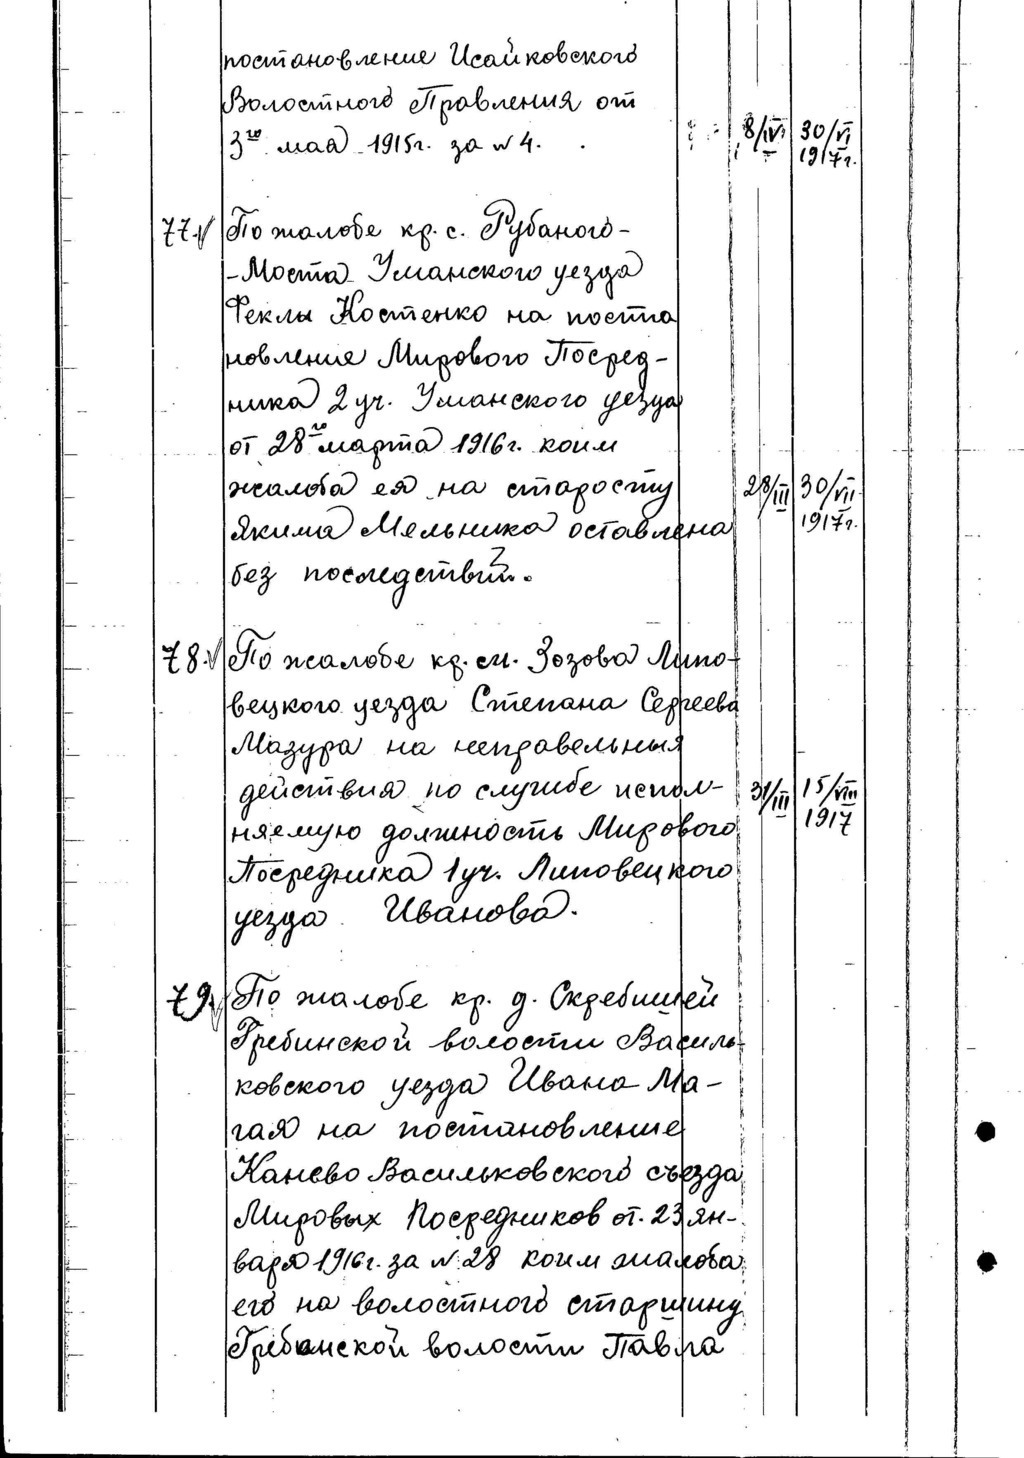 постановление Исайковского
Волостного Правления от
3го мая 1915г. за № 4. 8/IV 30/VI
1917г.
77. По жалобе кр. с. Рубаного-
-Моста Уманского уезда
Феклы Костенко на поста
новление Мирового Посред-
ника 2 уч. Уманского уезда
от 28го марта 1916г. коим
жалоба ея на старосту 28/III 30/VII
1917г.
Якима Мельника оставлена
без последствий.
78. По жалобе кр. м. Зозова Липо-
вецкого уезда Степана Сергеева
Мазура на неправельныя
действия по службе испол- 31/III 15/VIII
1917
няемую должность Мирового
Посредника 1 уч. Липовецкого
уезда Иванова.
79. По жалобе кр. д. Скребишей
Гребинской волости Василь-
ковского уезда Ивана Ма-
гая на постановление
Канево Васильковского съезда
Мировых Посредников от. 23 ян-
варя 1916г. за № 28 коим жалоба
его на волостного старшину
Гребинской волости Павла